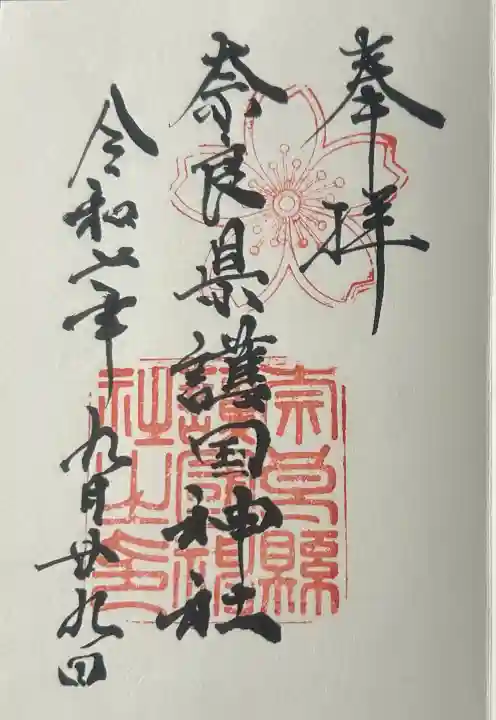 奉拝
奈良県護国神社
令和六年九月廿九日
奈良縣
護國神
社之印